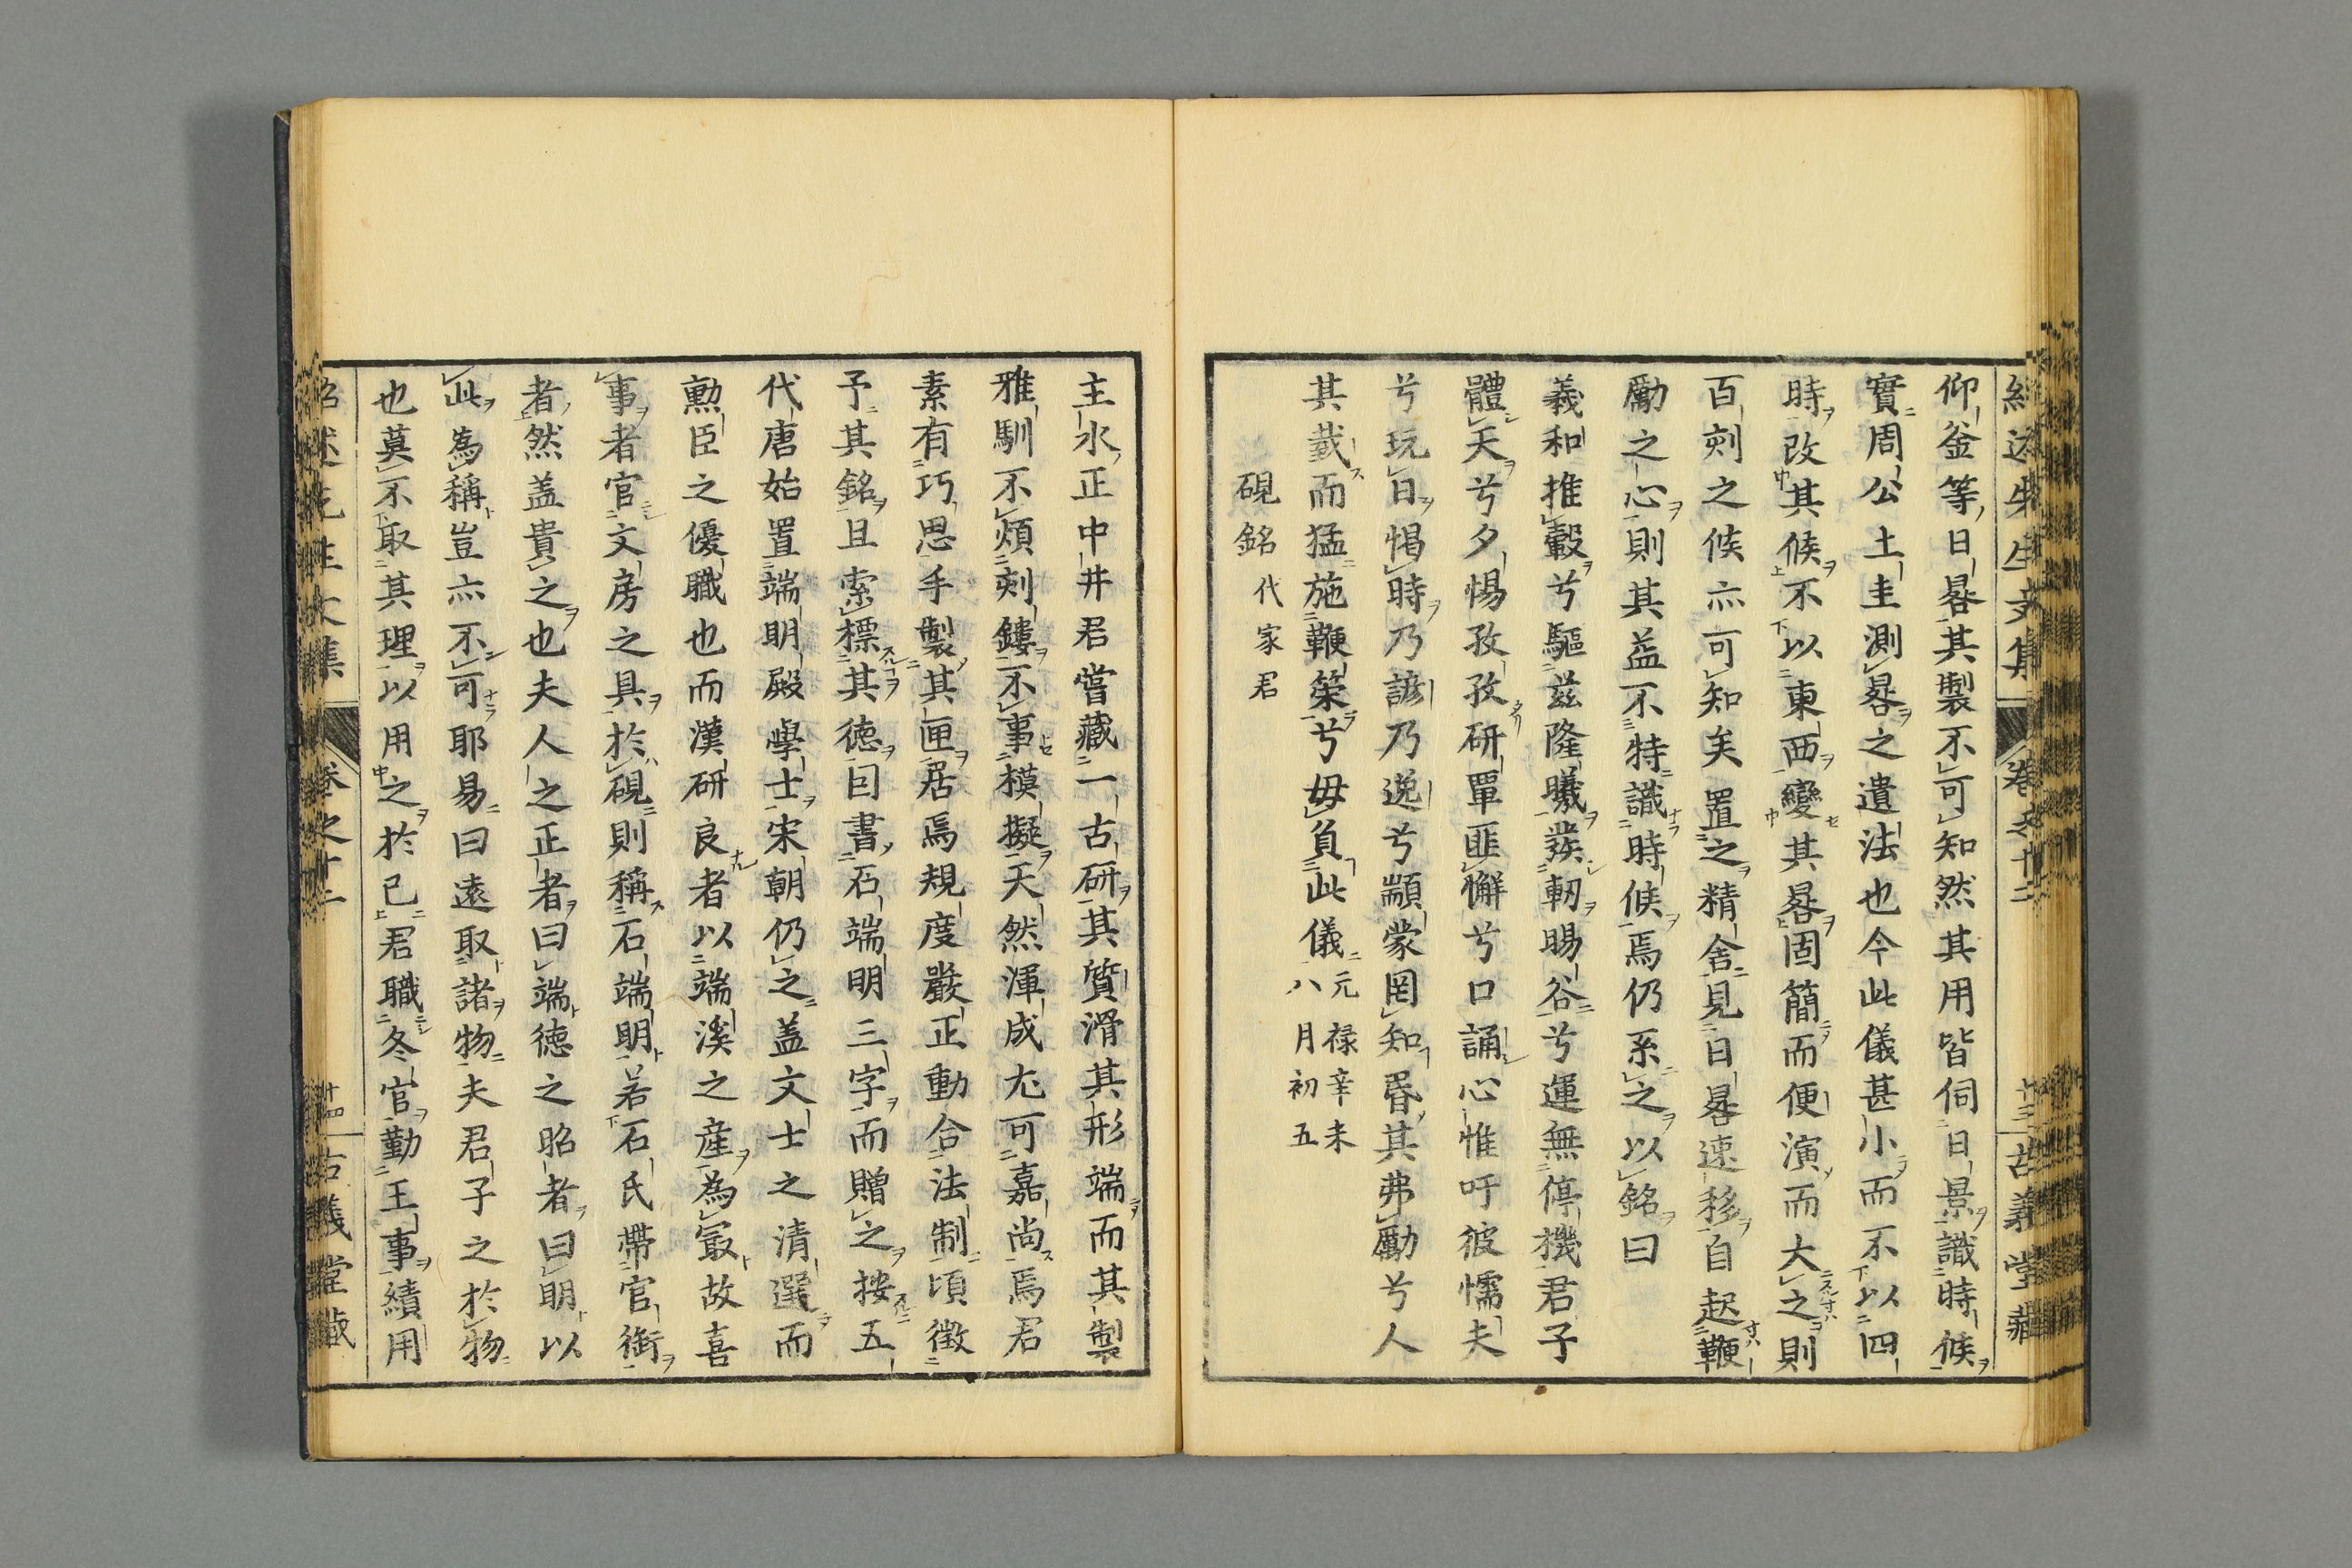 紹述先生文集 卷之十二 十三 古義堂藏
仰釜等日晷其製不可知然其用皆伺日景識時候
實周公土圭測晷之遺法也今此儀甚小而不以四
時改其候不以東西變其晷固簡而便演而大之則
百刻之候亦可知矣置之精舍見日晷速移自起鞭
勵之心則其益不特識時候焉仍系之以銘曰
義和推轂兮驅玆隆曦發軔暘谷兮運無停機君子
體天兮夕惕孜孜研覃匪懈兮口誦心惟吁彼懦夫
兮玩日愒時乃諺乃逸兮顓蒙罔知晷其弗勵兮人
其耋而猛施鞭策兮毋負此儀元禄辛未
八月初五
硯銘代家君
主水正中井君嘗藏一古研其質滑其形端而其製
雅馴不煩刻鏤不事模擬天然渾成尤可嘉尚焉君
素有巧思手製其匣居焉規度嚴正動合法制頃徵
予其銘且索標其徳因書石端明三字而贈之按五
代唐始置端明殿學士宋朝仍之盖文士之清選而
勲臣之優職也而漢研良者以端溪之産為冣故喜
事者官文房之具於硯則稱石端明若石氏帶官銜
者然盖貴之也夫人之正者曰端徳之昭者曰明以
此為稱豈亦不可耶易曰遠取諸物夫君子之於物
也莫不取其理以用之於己君職冬官勤王事績用
紹述先生文集 卷之十二 十四 古義堂藏